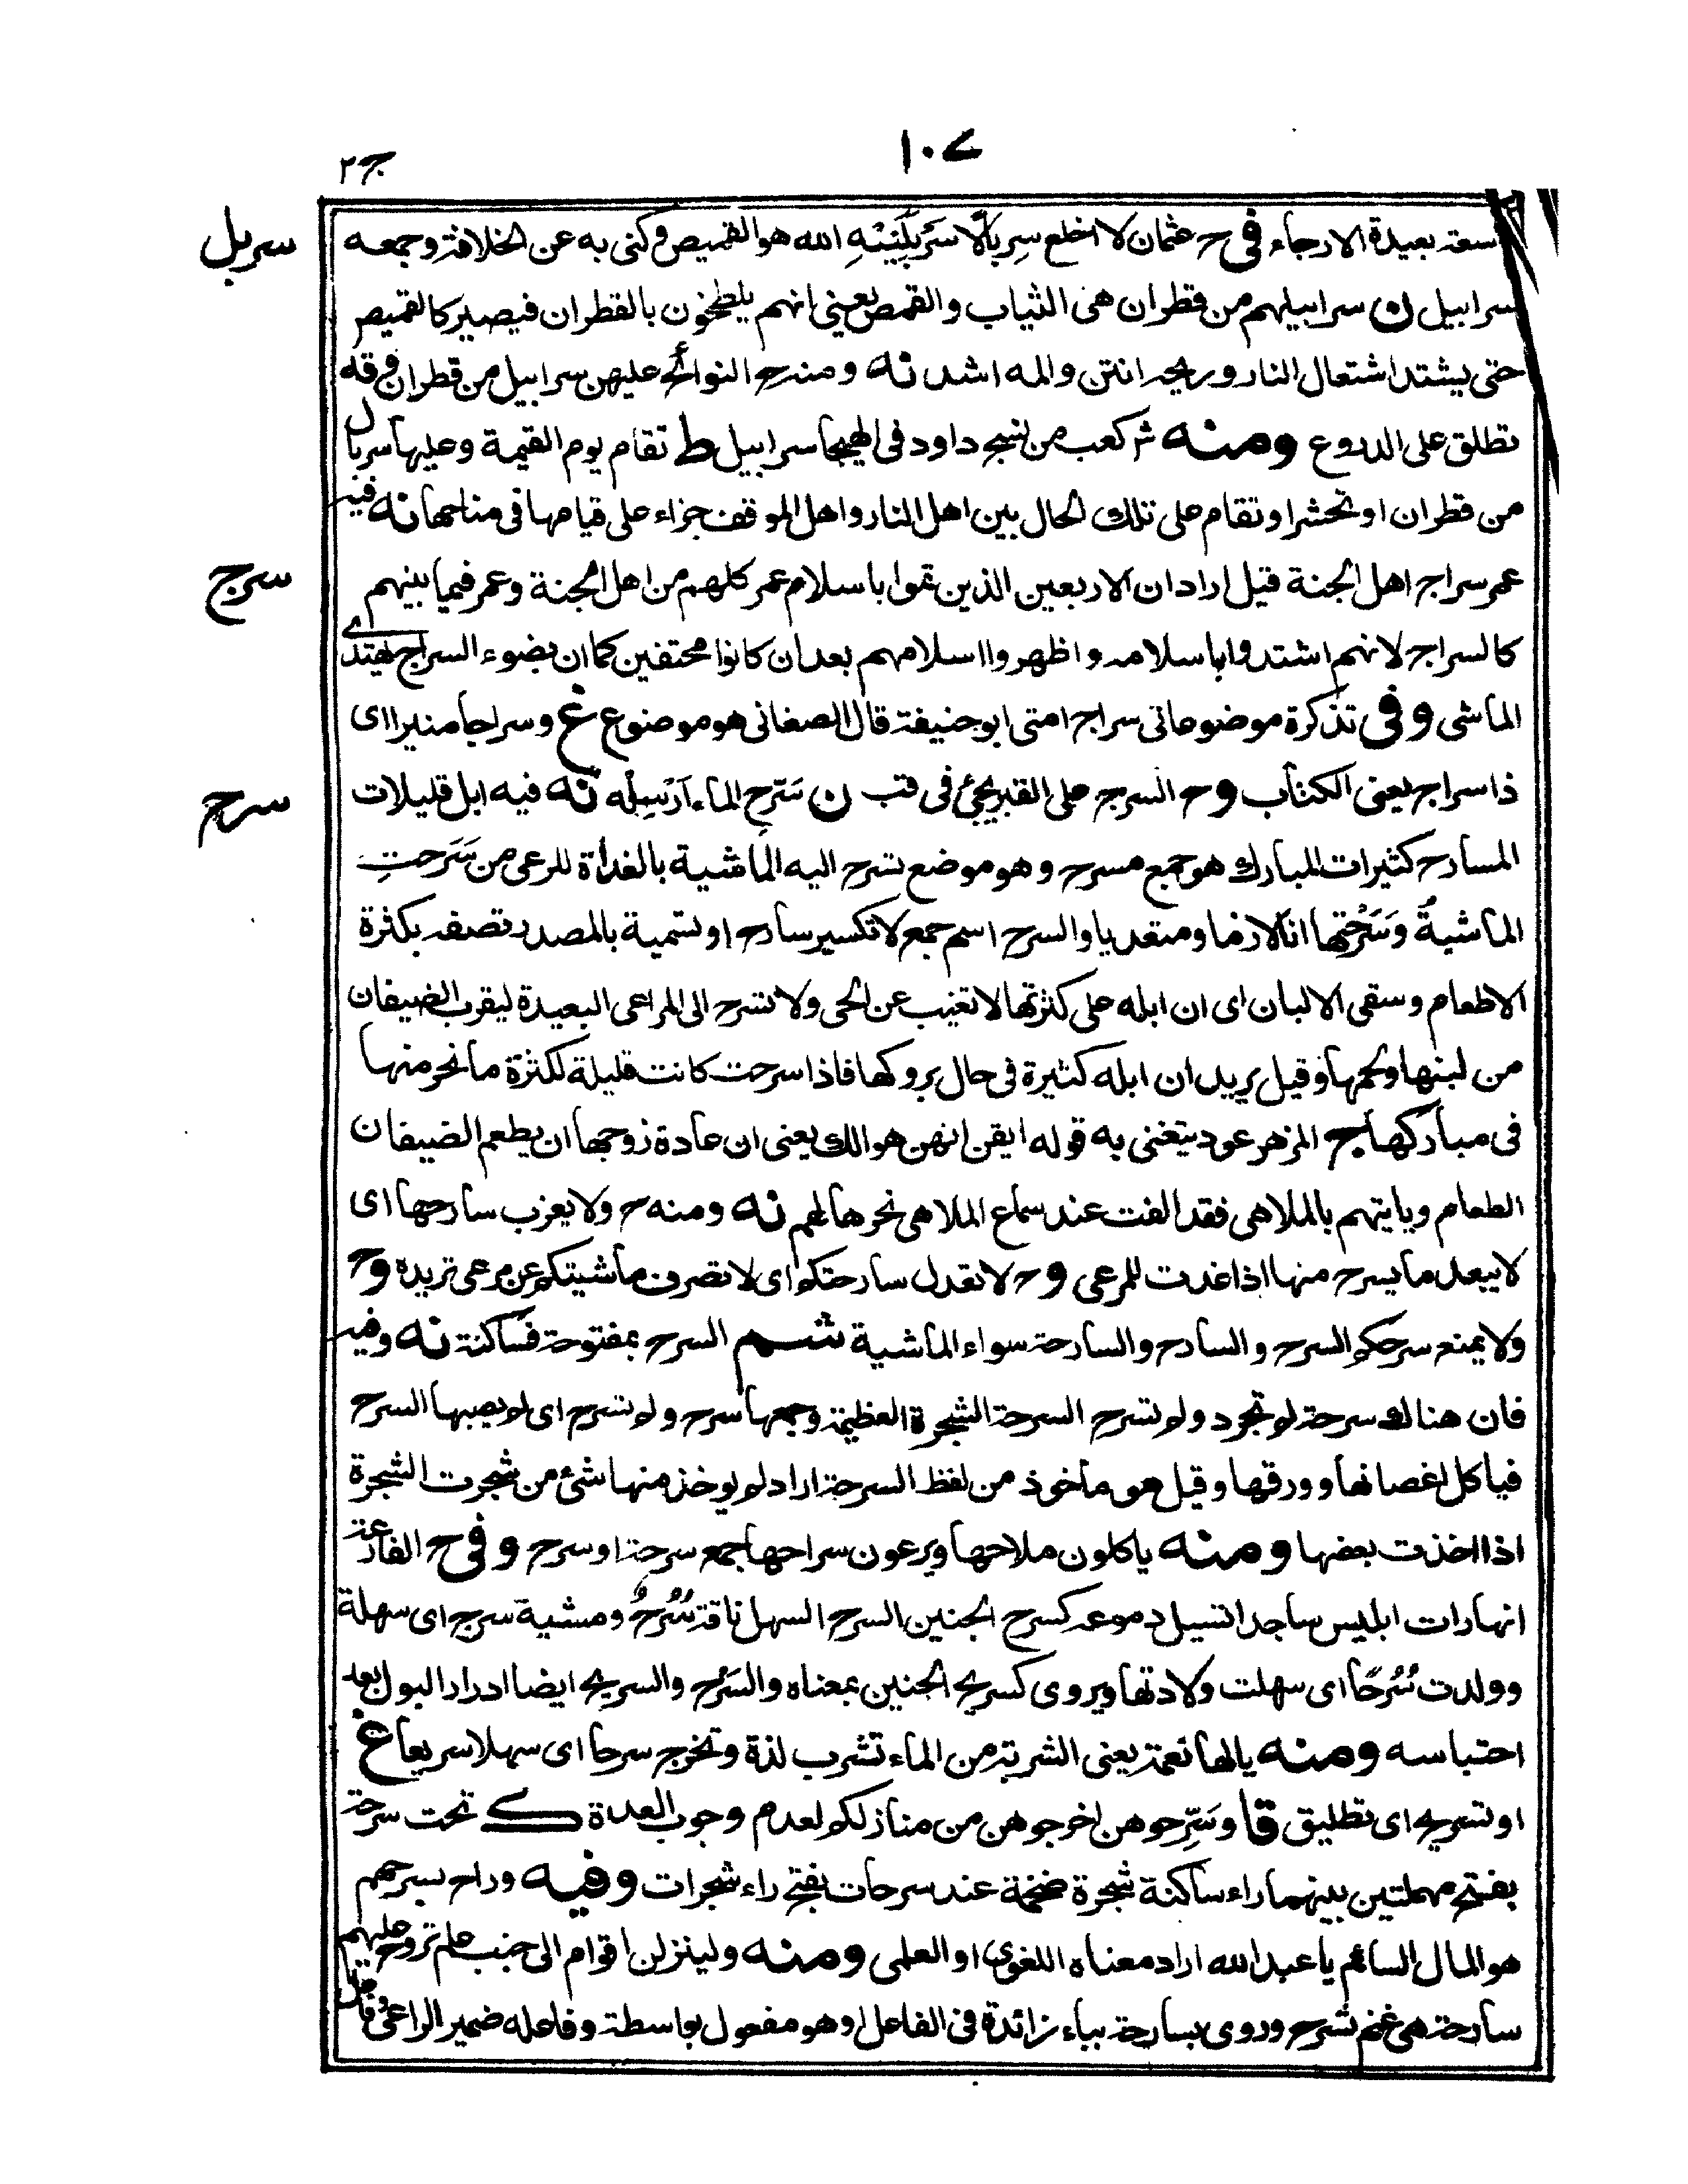 ١٠٧
ج ٢
سربل
واسعة بعيدة الارجاء فى ح عثمان لا اخلع سِربالًا سَرْبَلَنِيْهِ الله هو القميص وكنى به عن الخلافة وجمعه
سرابيل ن سرابيلهم من قطران هى الثياب والقمص يعنى انهم يلطخون بالقطران فيصير كالقميص
حتى يشتد اشتعال النار وريحه انتن والمه اشد نه ومنه ح النوائح عليهن سرابيل من قطران وقد
تطلق على الدروع ومنه ش كعب من نسج داود فى الهيجا سرابيل ط تقام يوم القيمة وعليها سربال
من قطران او تحشر او تقام على تلك الحال بين اهل النار واهل الموقف جزاء على قيامها فى مناحها نه فيه
سرج
عمر سراج اهل الجنة قيل اراد ان الاربعين الذين تموا باسلام عمر كلهم من اهل الجنة وعمر فيما بينهم
كالسراج لانهم اشتدوا باسلامه واظهروا اسلامهم بعد ان كانوا مختفين كما ان بضوء السراج يهتدى
الماشى وفى تذكرة موضوعاتى سراج امتى ابو حنيفة قال الصغانى هو موضوع غ وسراجا منيرا اى
ذا سراج يعنى الكتاب وح السرج على القبر يجئ فى قب ن سَرّح الماء اَرْسِلْه نه فيه ابل قليلات
سرح
المسارح كثيرات المبارك هو جمع مسرح وهو موضع تسرح اليه الماشية بالغداة للرعى من سَرَحتِ
الماشيةُ وَسَرَحْتها انا لازما ومتعديا والسرح اسم جمع لا تكسير سارح او تسمية بالمصدر تصفه بكثرة
الاطعام وسقى الالبان اى ان ابله على كثرتها لا تغيب عن الحى ولا تسرح الى المراعى البعيدة ليقرب الضيفان
من لبنها ولحمها وقيل يريد ان ابله كثيرة فى حال بروكها فاذا سرحت كانت قليلة لكثرة ما نحر منها
فى مباركها ج المزهر عود يتغنى به قوله ايقن انهن هوالك يعنى ان عادة زوجها ان يطعم الضيفان
الطعام وياتيهم بالملاهى فقد الفت عند سماع الملاهى نحرها لهم نه ومنه ح ولا يعزب سارحها اى
لا يبعد ما يسرح منها اذا غدت للمرعى وح لا تعدل سارحتكم اى لا تصرف ماشيتكم عن مرعى تريده وح
ولا يمنع سرحكم السرح والسارح والسارحة سواء الماشية شم السرح بمفتوحة فساكنة نه وفيه
فان هنالك سرحة لم تجرد ولم تسرح السرحة الشجرة العظيمة وجمعها سرح ولم تسرح اى لم يصبها السرح
فياكل اغصانها وورقها وقيل هو ماخوذ من لفظ السرحة اراد لم يوخذ منها شئ من شجرت الشجرة
اذا اخذت بعضها ومنه ياكلون ملاحها ويرعون سراحها جمع سرحة او سرح وفى ح الفارعة
انها رات ابليس ساجدا تسيل دموعه كسرح الجنين السرح السهل ناقة سُرُحٌ ومشية سرح اى سهلة
وولدت سُرُحًا اى سهلت ولادتها ويروى كسريح الجنين بمعناه والسَرْح والسريح ايضا ادرار البول بعد
احتباسه ومنه يا لها نعمة يعنى الشربة من الماء تشرب لذة وتخرج سرحا اى سهلا سريعا غ
او تسريح اى تطليق قا وسَرِّحوهن اخرجوهن من منازلكم لعدم وجوب العدة ك تحت سرحة
بفتح مهملتين بينهما راء ساكنة شجرة ضخمة عند سرحات بفتح راء شجرات وفيه وراح بسرحهم
هو المال السائم يا عبد الله اراد معناه اللغوى او العلمى ومنه ولينزلن اقوام الى جنب علم تروح عليهم
سارحة هى غنم تسرح وروى بسارحة بباء زائدة فى الفاعل او هو مفعول بواسطة وفاعله ضمير الراعى